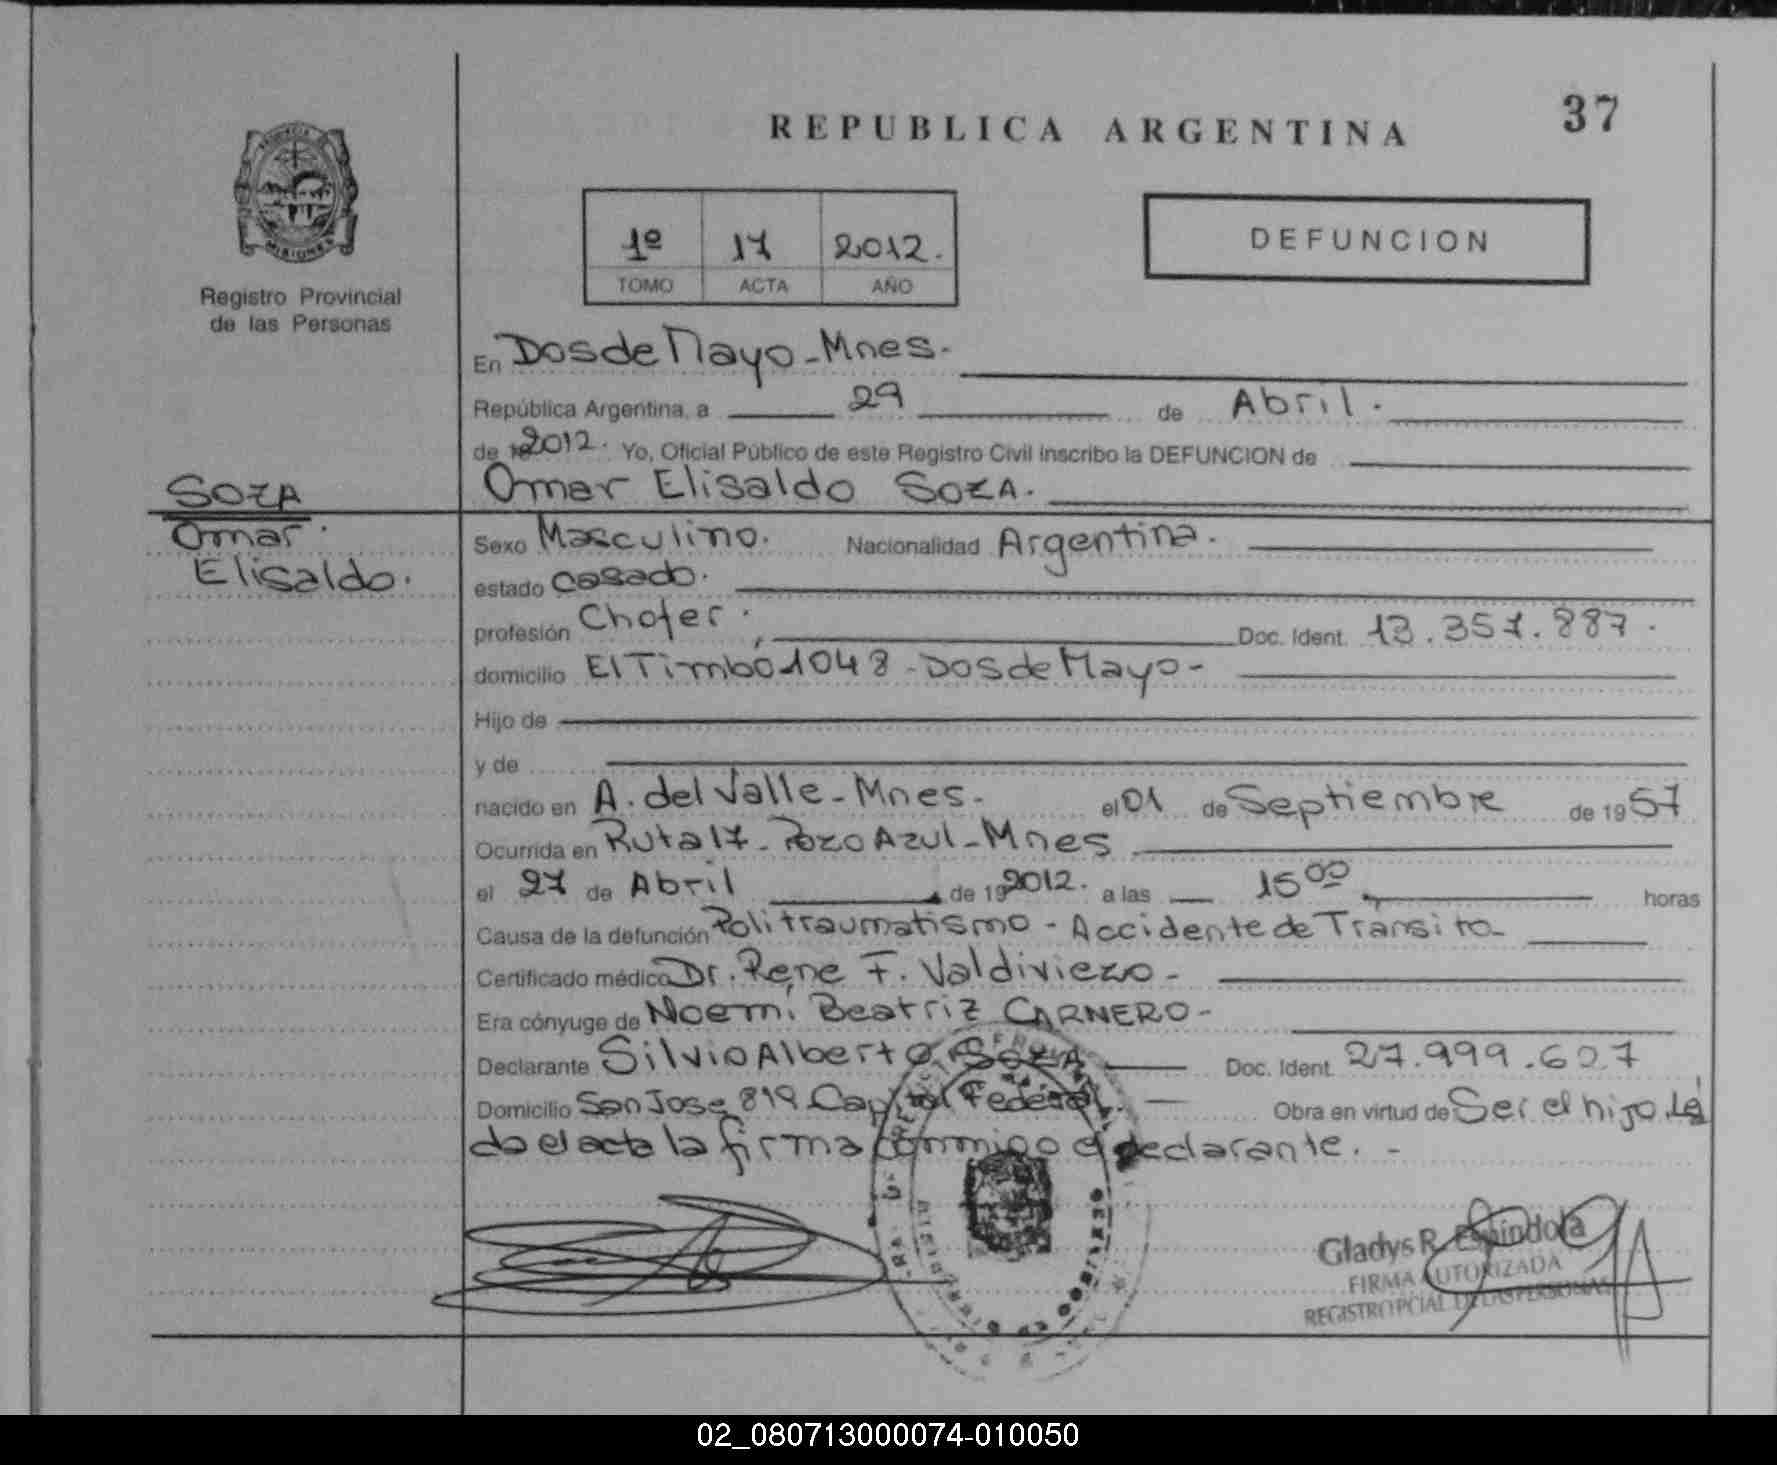 REPUBLICA ARGENTINA
37
1º 17 2012.
TOMO ACTA AÑO
DEFUNCION
MISIONES
Registro Provincial
de las Personas
En Dos de Mayo - Mnes.
República Argentina, a 29 de Abril.
de 2012. Yo, Oficial Público de este Registro Civil inscribo la DEFUNCION de
Omar Elisaldo SOZA.
SOZA
Omar
Elisaldo.
Sexo Masculino. Nacionalidad Argentina.
estado casado.
profesión Chofer. Doc. Ident. 13.357.887.
domicilio El Timbó 1048 - Dos de Mayo -
Hijo de
y de
nacido en A. del Valle - Mnes. el 01 de Septiembre de 1957
Ocurrida en Ruta 17 - Pozo Azul - Mnes
el 27 de Abril de 192012. a las 15 00 horas
Causa de la defunción Politraumatismo - Accidente de Transito -
Certificado médico Dr. Rene F. Valdiviezo -
Era cónyuge de Noemí Beatriz CARNERO -
Declarante Silvio Alberto SOZA Doc. Ident. 27.999.607
Domicilio San Jose 819 Capital Federal. Obra en virtud de Ser el hijo. Leí
do el acta la firma conmigo el declarante. -
Gladys R. Espíndola
FIRMA AUTORIZADA
REGISTRO PCIAL DE LAS PERSONAS
02_080713000074-010050